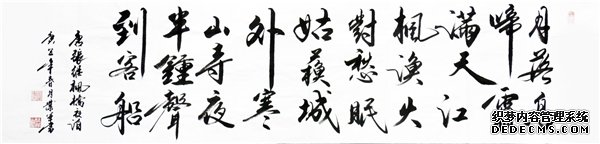 月落烏
啼霜
滿天江
楓漁火
對愁眠
姑蘇城
外寒
山寺夜
半鐘聲
到客船
唐張繼楓橋夜泊
年春月 書
织梦内容管理系统
DEDECMS.COM